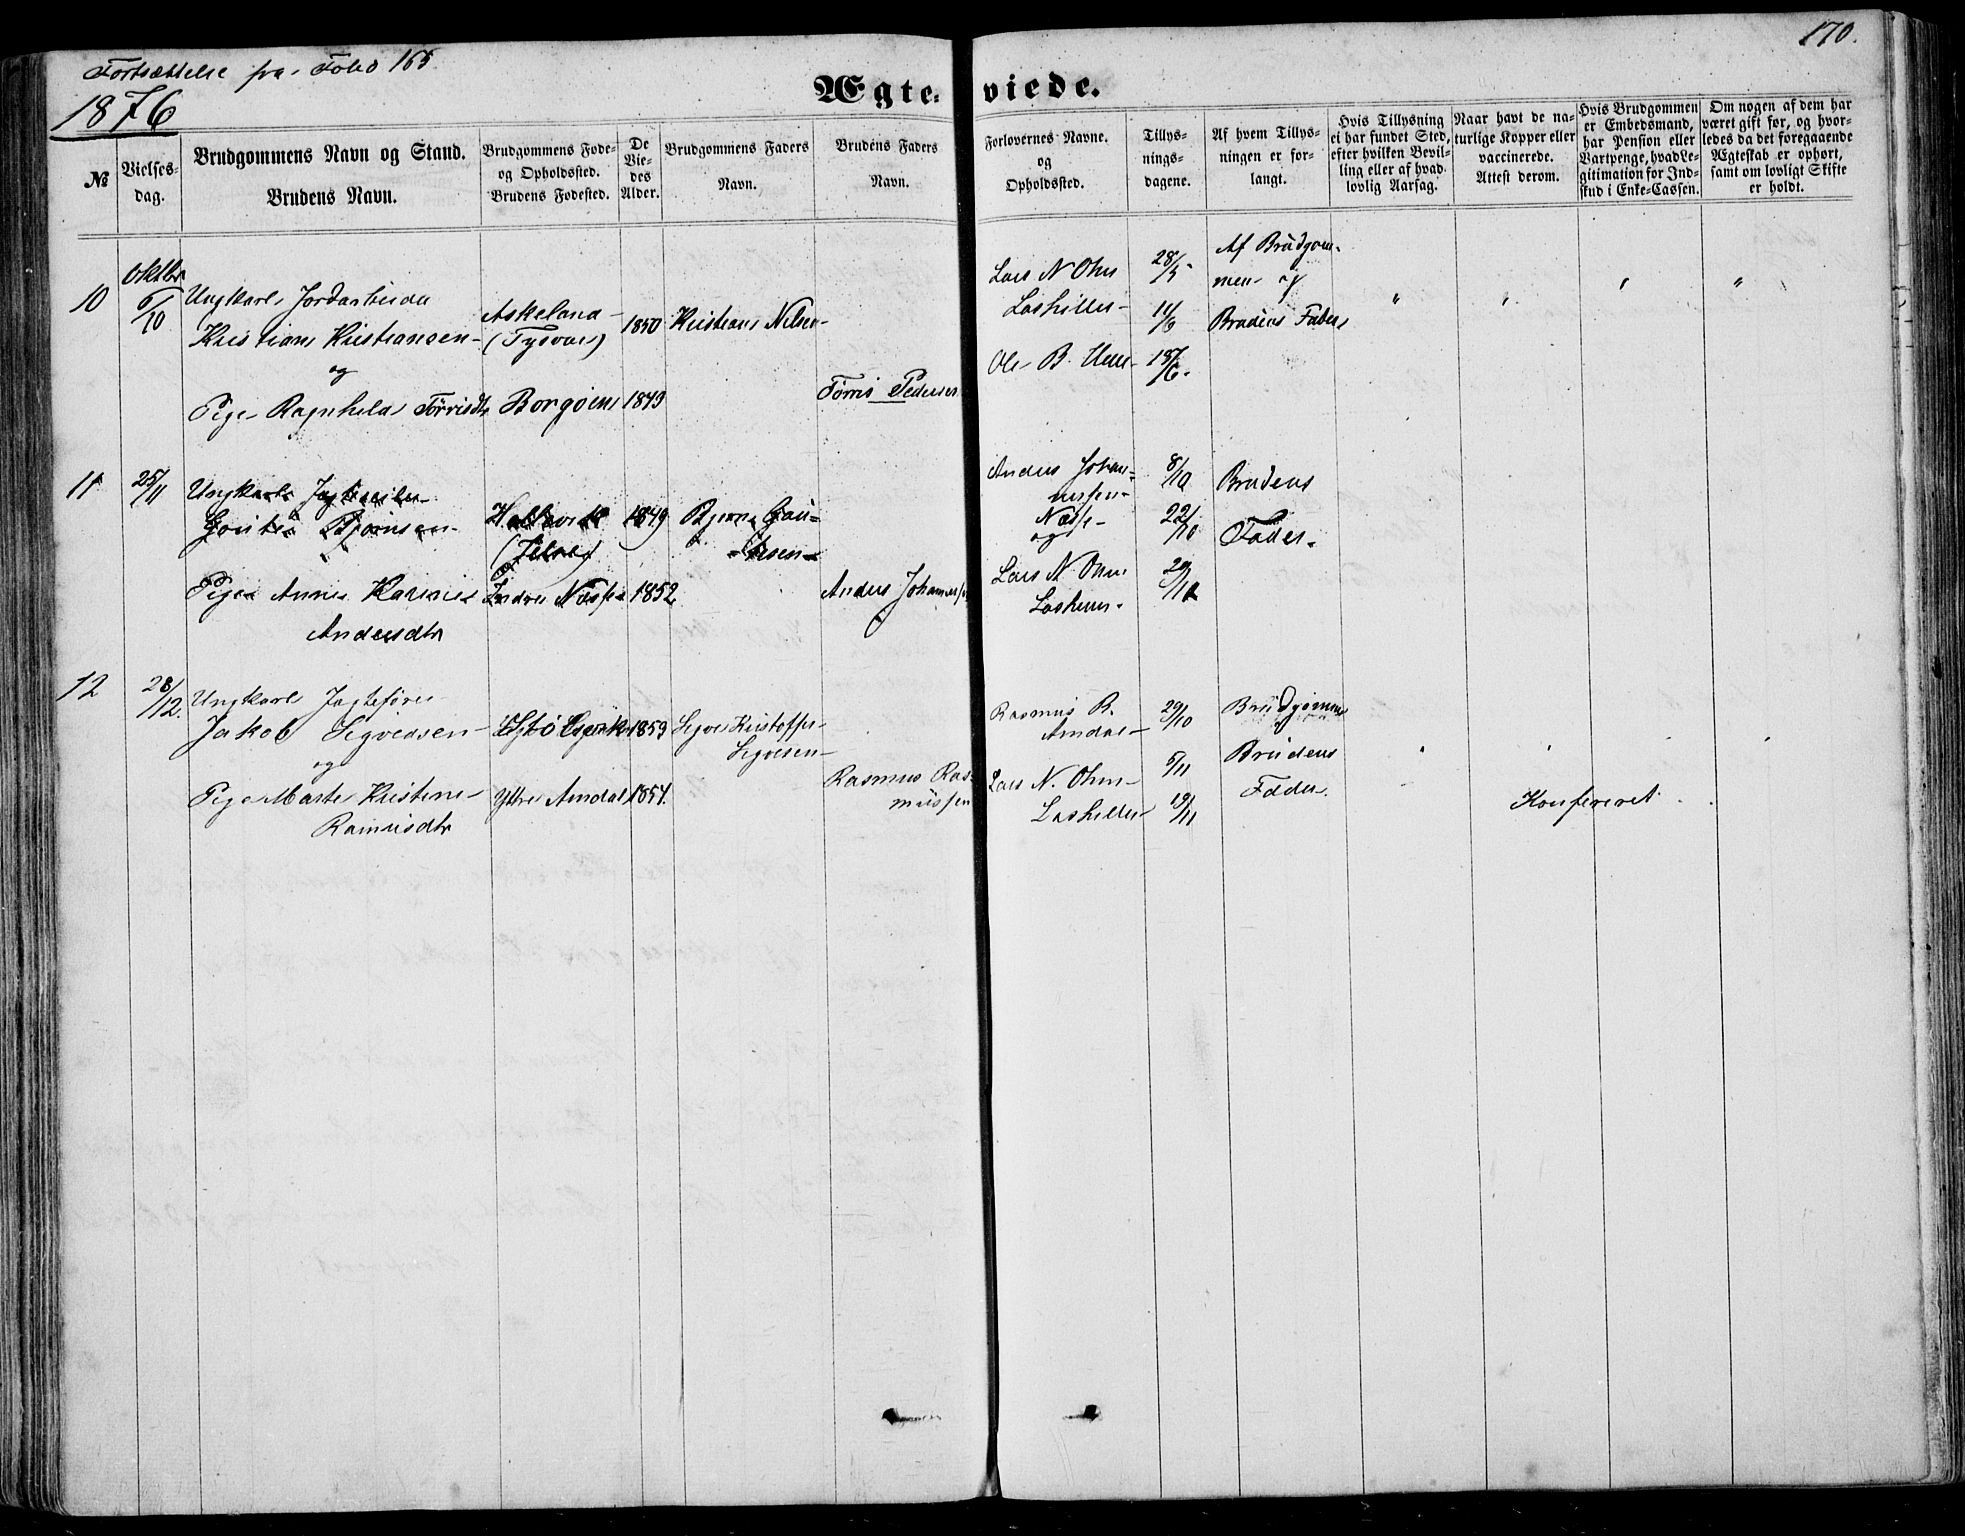 Fortsættelse fra Folio 165
170.
1876
Ægteviede.
№
Vielsesdag.
Brudgommens Navn og Stand.
Brudens Navn.
Brudgommens Fødeog
Opholdssted.
Brudens Fødested.
De
Viedes
Alder.
Brudgommens Faders
Navn.
Brudens Faders
Navn.
Forlovernes Navne.
og
Opholdssted.
Tillysningsdagene.
Af hvem Tillysningen
er forlangt.
Hvis Tillysning
ei har fundet Sted,
efter hvilken Bevilling
eller af hvad
lovlig Aarsag.
Naar havt de naturlige
Kopper eller
vaccinerede.
Attest derom.
Hvis Brudgommen
er Embedsmand,
har Pension eller
Vartpenge, hvad Legitimation
for Indskud
i Enke-Cassen.
Om nogen af dem har
været gift før, og hvorledes
da det foregaaende
Ægteskab er ophørt,
samt om lovligt Skifte
er holdt.
10
Oktbr
6/10
Ungkarl Jordarbeider
Kristian Kristiansen
og
Pige Ragnhild Tørrisdtr
Askeland
(Tysvær)
Borgøen
1850
1843
Kristian Nilsen
Tørris Pedersen
Lars N Ohm
Ole B.
28/5
11/6
18/6
Af Brudgommen
og
Brudens Fader
11
25/11
Ungkarl
Gouté Bjørnsen
og
Pige Anne Karine
Andersdtr
Indre Næsse
1849
1852
Bjørn Gautesen
Anders Johannessen
Anders Johannessen
Næsse
og
Lars N. Ohm
8/10
22/10
29/10
Brudens
Fader
12
28/12.
Ungkarl Jagtefører
Jakob Sigvedsen
og
Pige Marte Kristine
Rasmusdtr
Ytre Amdal
1853
1854.
Rasmus Rasmussen
Rasmus R.
Amdal
Lars N. Ohm
29/10
5/11
19/11
Brudgommen
Brudens
Fader.
Konfereret